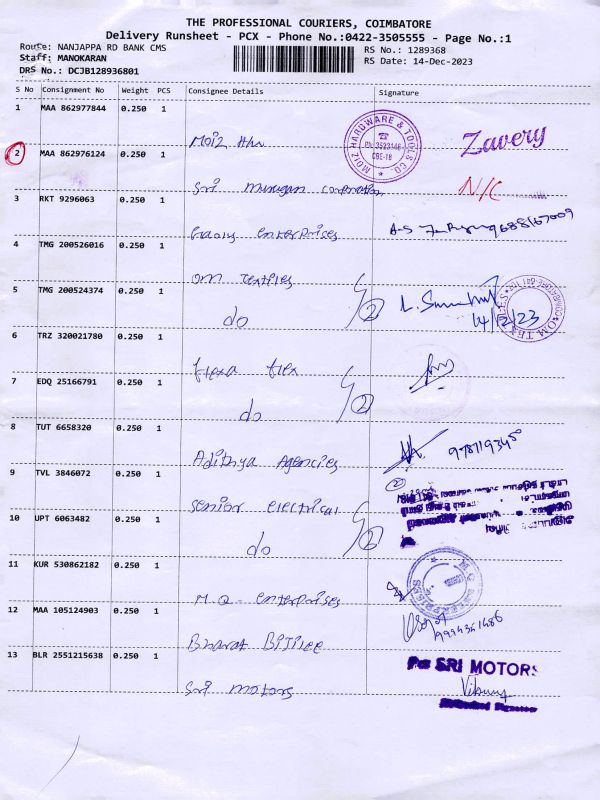 THE PROFESSIONAL COURIERS, COIMBATORE
Delivery Runsheet - PCX - Phone No.:0422-3505555 - Page No.:1
Route: NANJAPPA RD BANK CMS
RS No.: 1289368
Staff: MANOKARAN
RS Date: 14-Dec-2023
DRS No.: DCJB128936801
S No Consignment No Weight PCS Consignee Details Signature
1 MAA 862977844 0.250 1
MOIZ HARDWARE & TOOLS CO.
CBE-18
Zavery
2 MAA 862976124 0.250 1
Sri Murugan Corporation
N/C
3 RKT 9296063 0.250 1
enterprises
4 TMG 200526016 0.250 1
om textiles
2
5 TMG 200524374 0.250 1
do
14/12/23
6 TRZ 320021780 0.250 1
flexa flex
2
7 EDQ 25166791 0.250 1
do
8 TUT 6658320 0.250 1
Adithya Agencies
9 TVL 3846072 0.250 1
2
senior electrical
2
10 UPT 6063482 0.250 1
do
11 KUR 530862182 0.250 1
enterprises
12 MAA 105124903 0.250 1
Bharat Bijlee
13 BLR 2551215638 0.250 1
For SRI MOTORS
Sri motors
Authorised Signatory